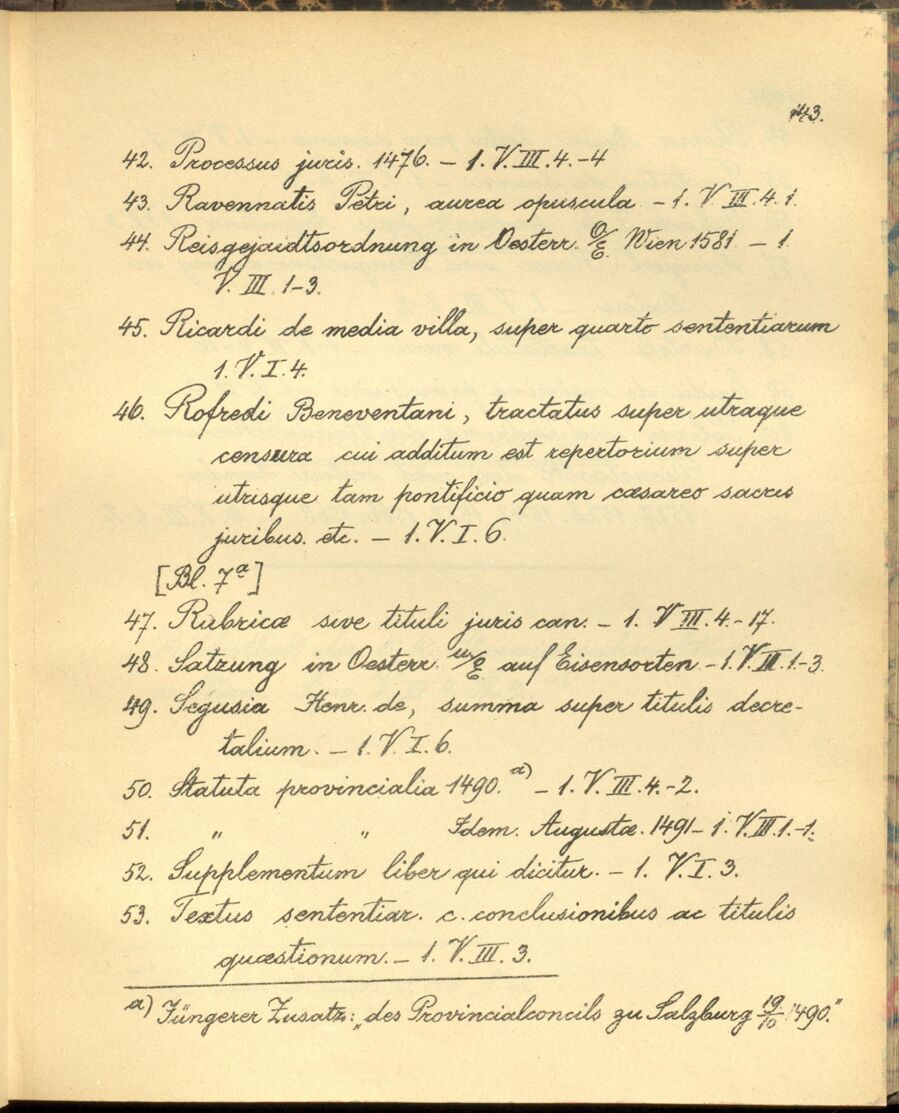 143.
42. Processus juris. 1476. – 1. V. III. 4. – 4
43. Ravennatis Petri, aurea opuscula – 1. V III. 4. 1.
44. Reisgejaidtsordnung in Oesterr. O/E. Wien 1581 – 1.
V. III. 1–3.
45. Ricardi de media villa, super quarto sententiarum
1. V. I. 4.
46. Rofredi Beneventani, tractatus super utraque
censura cui additum est repertorium super
utrisque tam pontificio quam cæsareo sacris
juribus. etc. – 1. V. I. 6.
[Bl. 7ª]
47. Rubricæ sive tituli juris can. – 1. V III. 4. – 17.
48. Satzung in Oesterr. u/E auf Eisensorten – 1. V. III. 1. – 3.
49. Segusia Henr. de, summa super titulis decre-
talium. – 1. V. I. 6.
50. Statuta provincialia 1490. a) – 1. V. III. 4. – 2.
51. " " Idem. Augustæ. 1491 – 1. V. III. 1. – 1.
52. Supplementum liber qui dicitur. – 1. V. I. 3.
53. Textus sententiar. c. conclusionibus ac titulis
quæstionum. – 1. V. III. 3.
a) Jüngerer Zusatz: „des Provincialconcils zu Salzburg 19/10 1490."